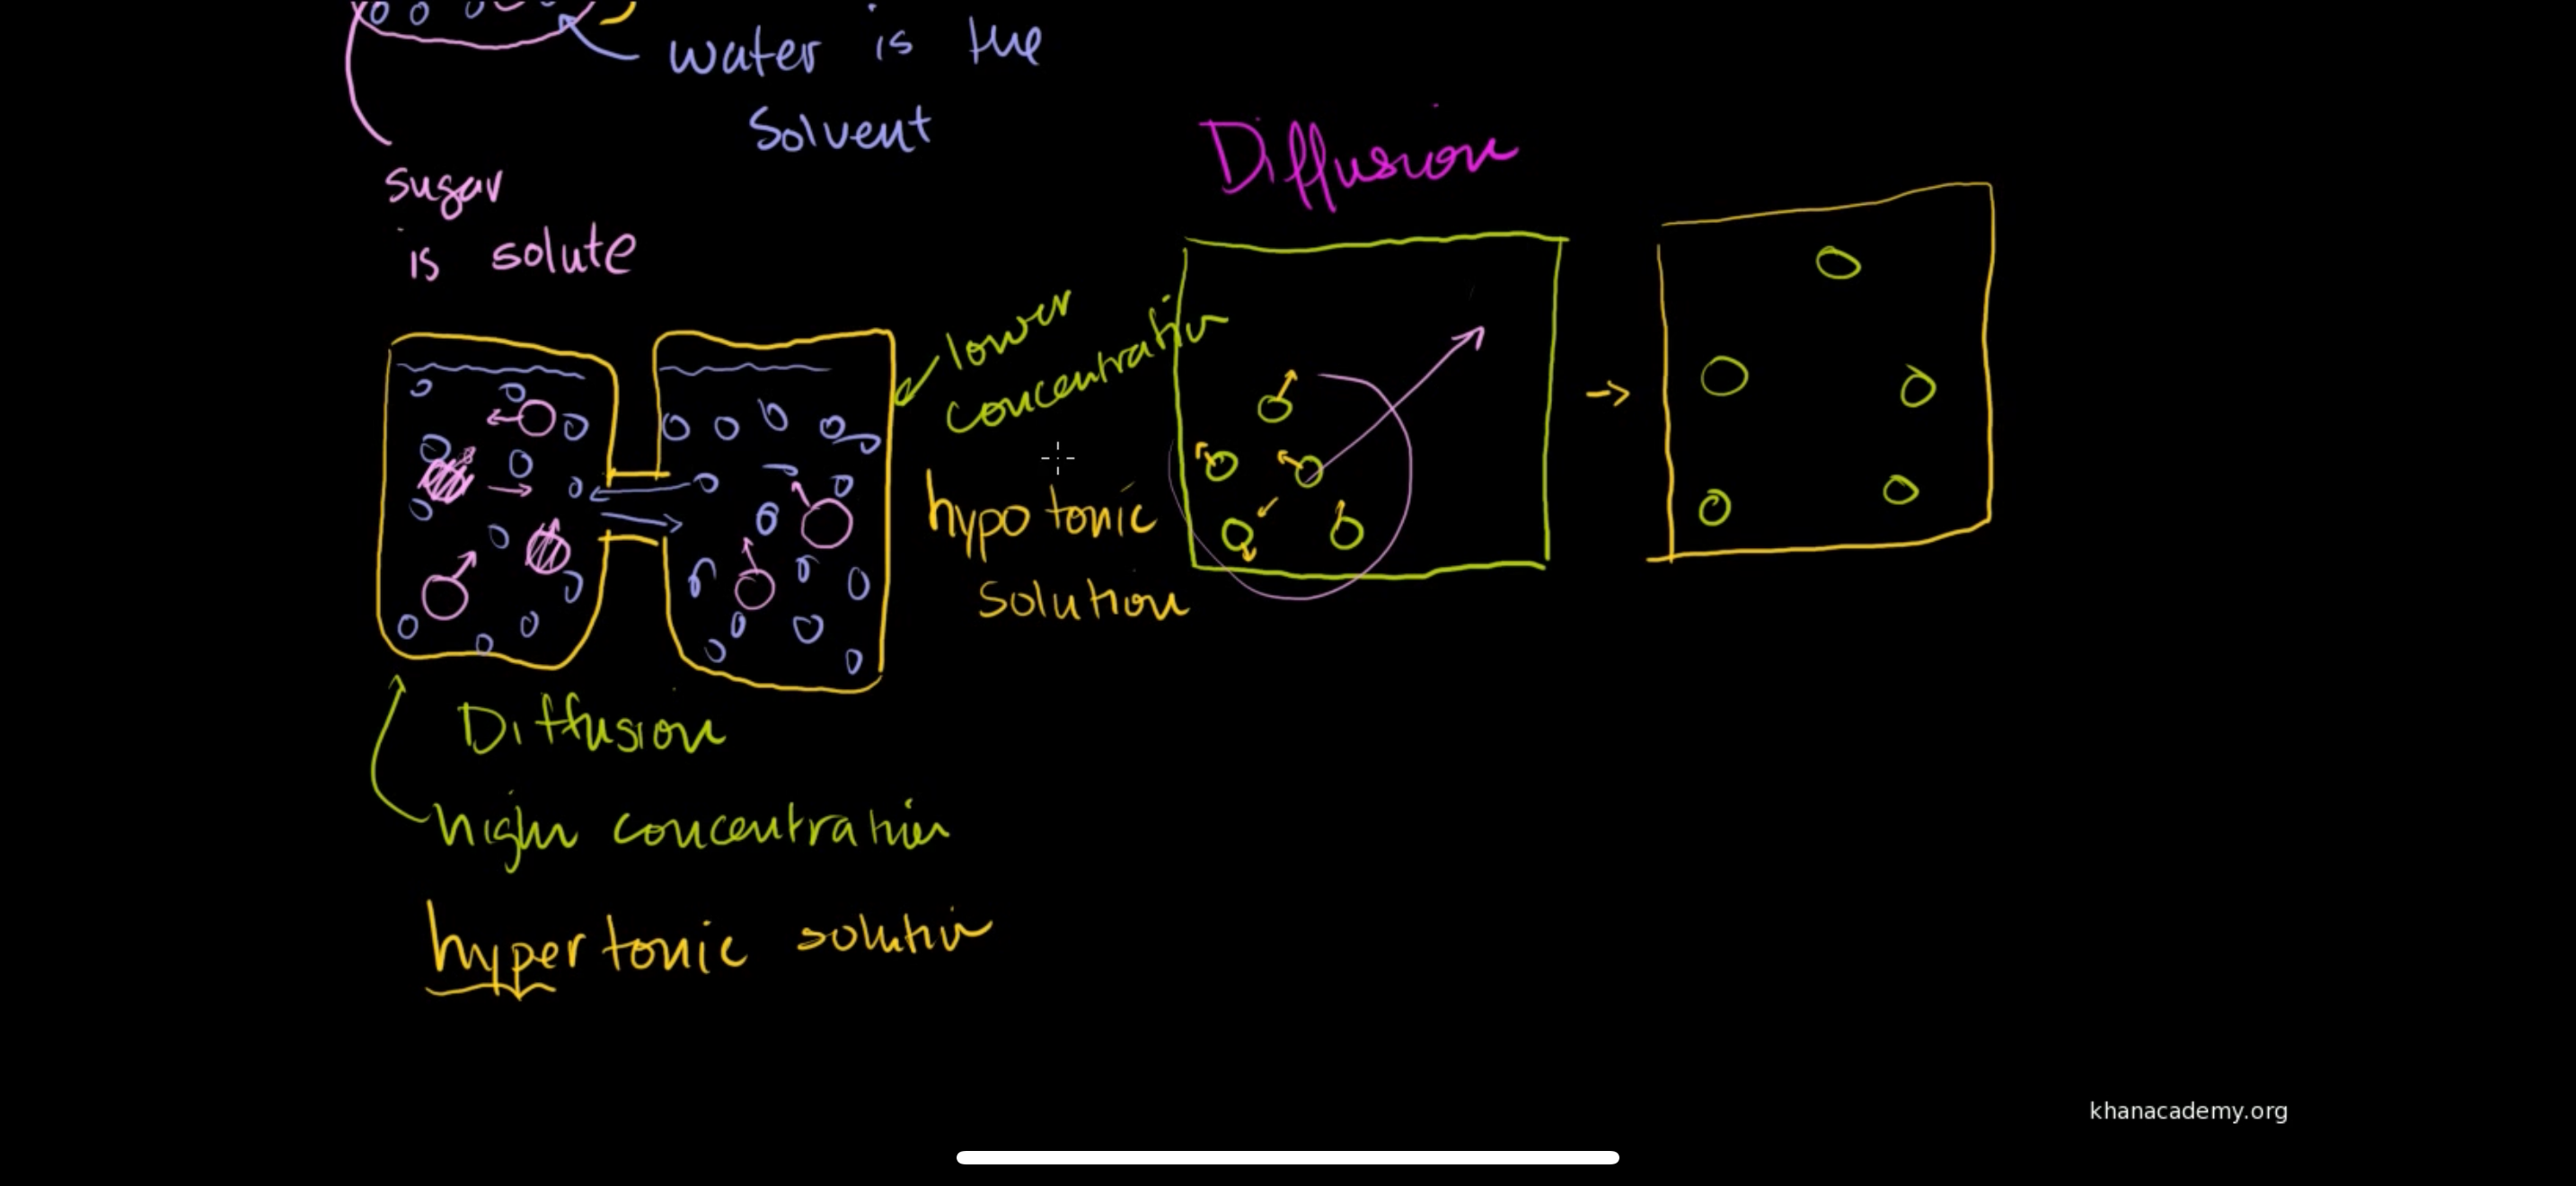 water is the
solvent
sugar
is solute
Diffusion
lower
concentration
hypotonic
solution
Diffusion
high concentration
hypertonic solution
khanacademy.org